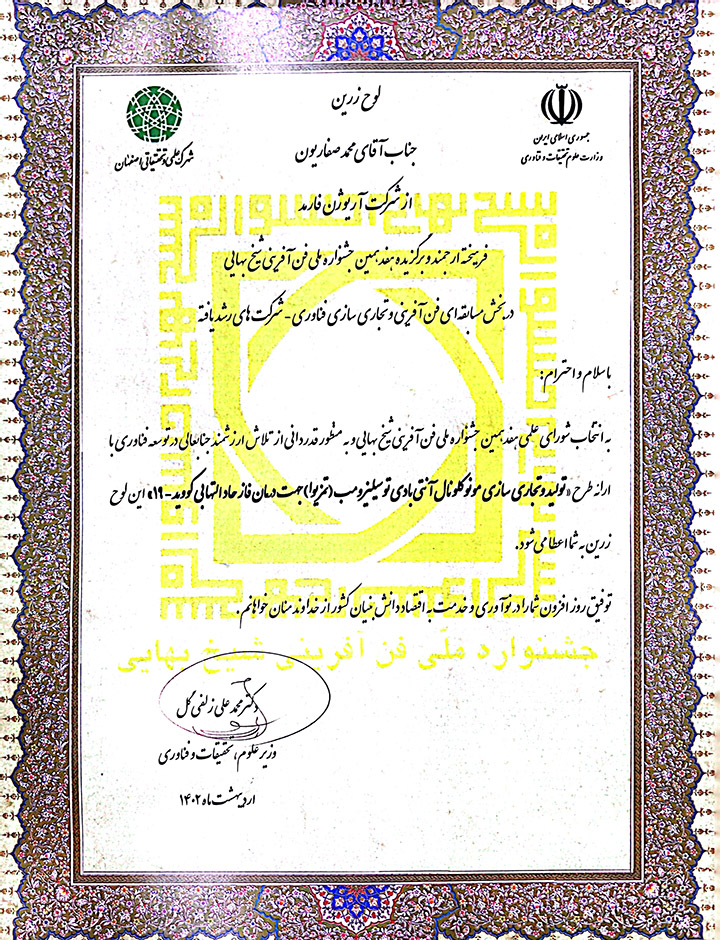 لوح زرین
جمهوری اسلامی ایران
وزارت علوم تحقیقات و فناوری
شهرک علمی و تحقیقاتی اصفهان
جناب آقای محمد صفاریون
از شرکت آریوژن فارمد
فریخته ارجمند و برگزیده هفدهمین جشنواره ملی فن آفرینی شیخ بهایی
در بخش مسابقه ای فن آفرینی و تجاری سازی فناوری - شرکت های رشد یافته
با سلام و احترام:
به انتخاب شورای علمی هفدهمین جشنواره ملی فن آفرینی شیخ بهایی و به منظور قدردانی از تلاش ارزشمند جنابعالی در توسعه فناوری با
ارائه طرح «تولید و تجاری سازی مونوکلونال آنتی بادی توسیلیزومب (تمزیوا) جهت درمان فاز حاد التهابی کووید - ۱۹» این لوح
زرین به شما اعطا می شود.
توفیق روز افزون شما را در نوآوری و خدمت به اقتصاد دانش بنیان کشور از خداوند منان خواهانم.
جشنواره ملّی فن آفرینی شیخ بهایی
دکتر محمد علی زلفی گل
وزیر علوم، تحقیقات و فناوری
اردیبهشت ماه ۱۴۰۲